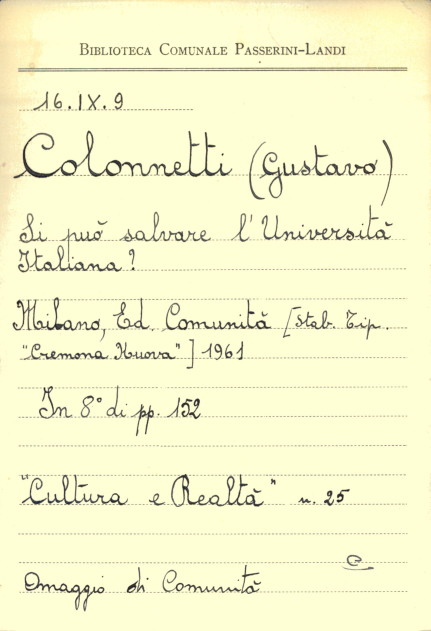 BIBLIOTECA COMUNALE PASSERINI-LANDI
16.IX.9
Colonnetti (Gustavo)
Si può salvare l'Università
Italiana?
Milano, Ed. Comunità [Stab. Tip.
"Cremona Nuova"] 1961
In 8° di pp. 152
"Cultura e Realtà" n. 25
e
Omaggio di Comunità